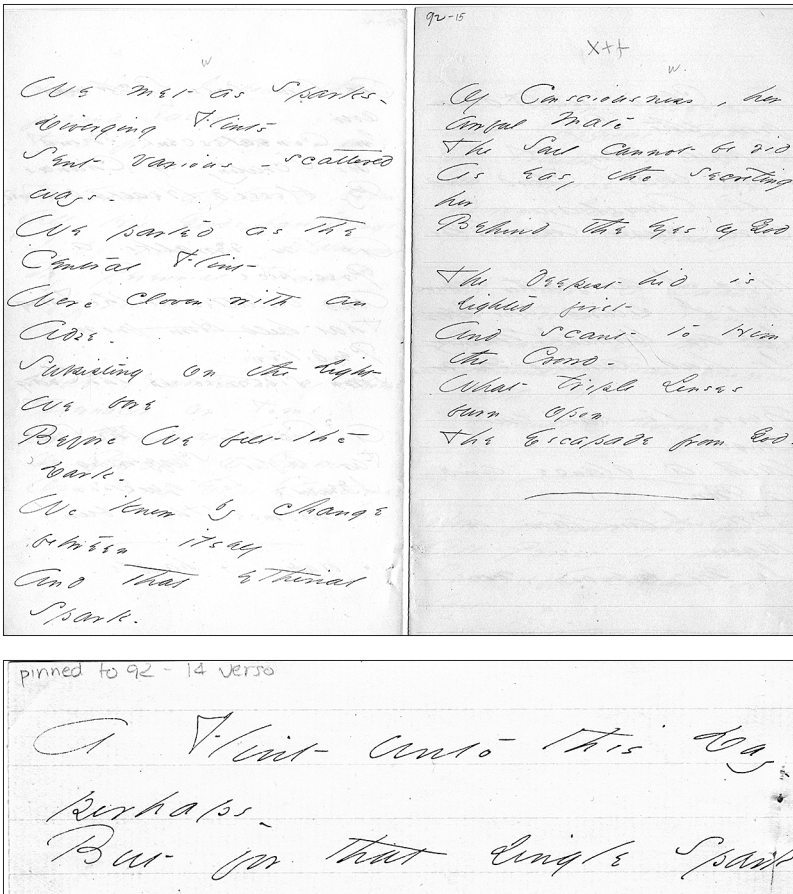 w
We met as Sparks -
Diverging Flints
Sent various - scattered
ways -
We parted as the
Central Flint -
Were cloven with an
Adze -
Subsisting on the Light
We bore
Before We felt the
Dark -
We knew by change
between itself
And that etherial
Spark.
92-15
X++
w.
Of Consciousness, her
awful Mate
The Soul cannot be rid
As easy the secreting
her
Behind the Eyes of God
The deepest hid is
sighted first
And scant to Him
the Crowd -
What triple Lenses
burn upon
The Escapade from God -
pinned to 92 - 14 verso
A Flint unto this Day
perhaps -
But for that single Spark